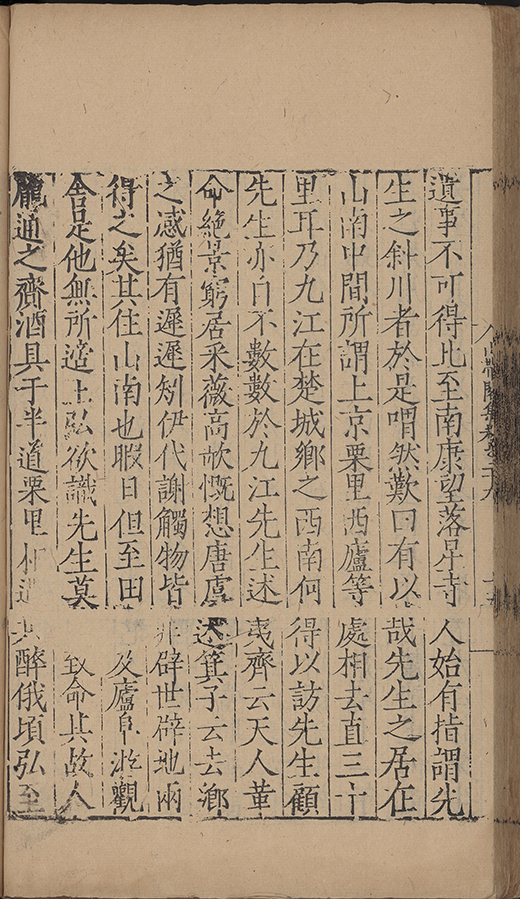 遺事不可得比至南康望落星寺人始有指謂先
生之斜川者於是喟然歎曰有以哉先生之居在
山南中間所謂上京栗里西廬等處相去直三十
里耳乃九江在楚城鄉之西南何得以訪先生顧
先生亦曰不數數於九江先生述夷齊云天人革
命絕景窮居采薇高歌慨想唐虞述箕子云去鄉
之感猶有遲遲矧伊代謝觸物皆非辟世辟地兩
得之矣其住山南也暇日但至田及廬阜游觀
舍是他無所適王弘欲識先生莫致命其故人
龐通之齎酒具于半道栗里醉俄頃弘至